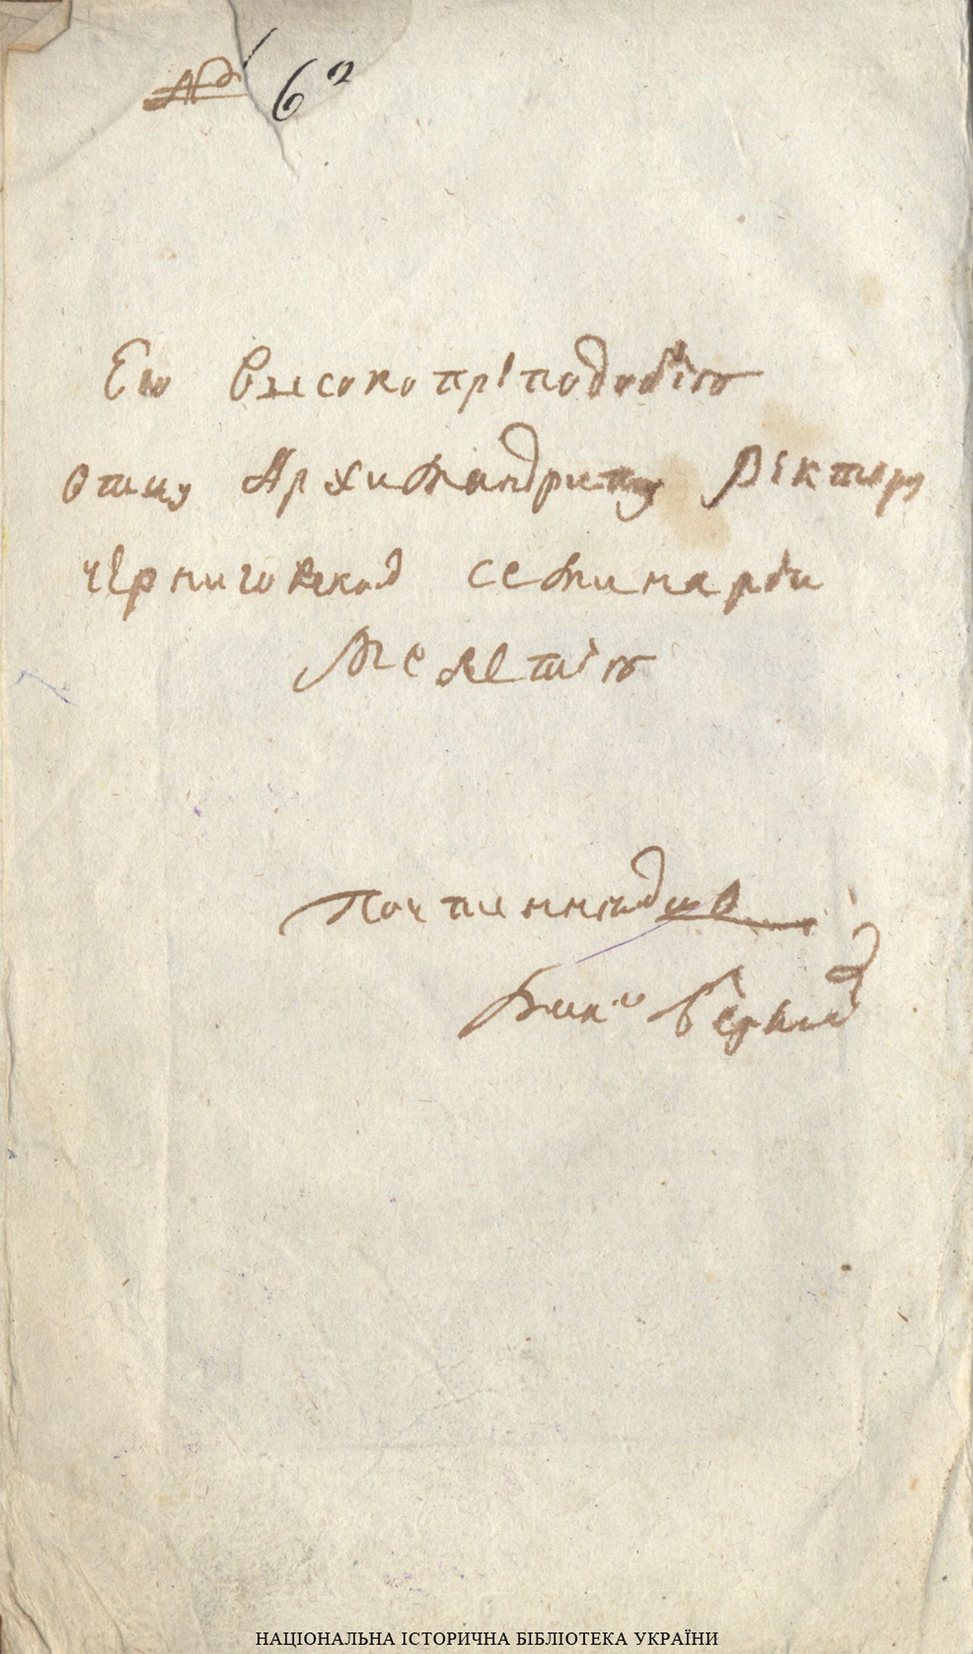 № 62
Его высокопріподобію
отцу Архимандриту Ріктору
чірниговской семинаріи
Мелетію
НАЦІОНАЛЬНА ІСТОРИЧНА БІБЛІОТЕКА УКРАЇНИ